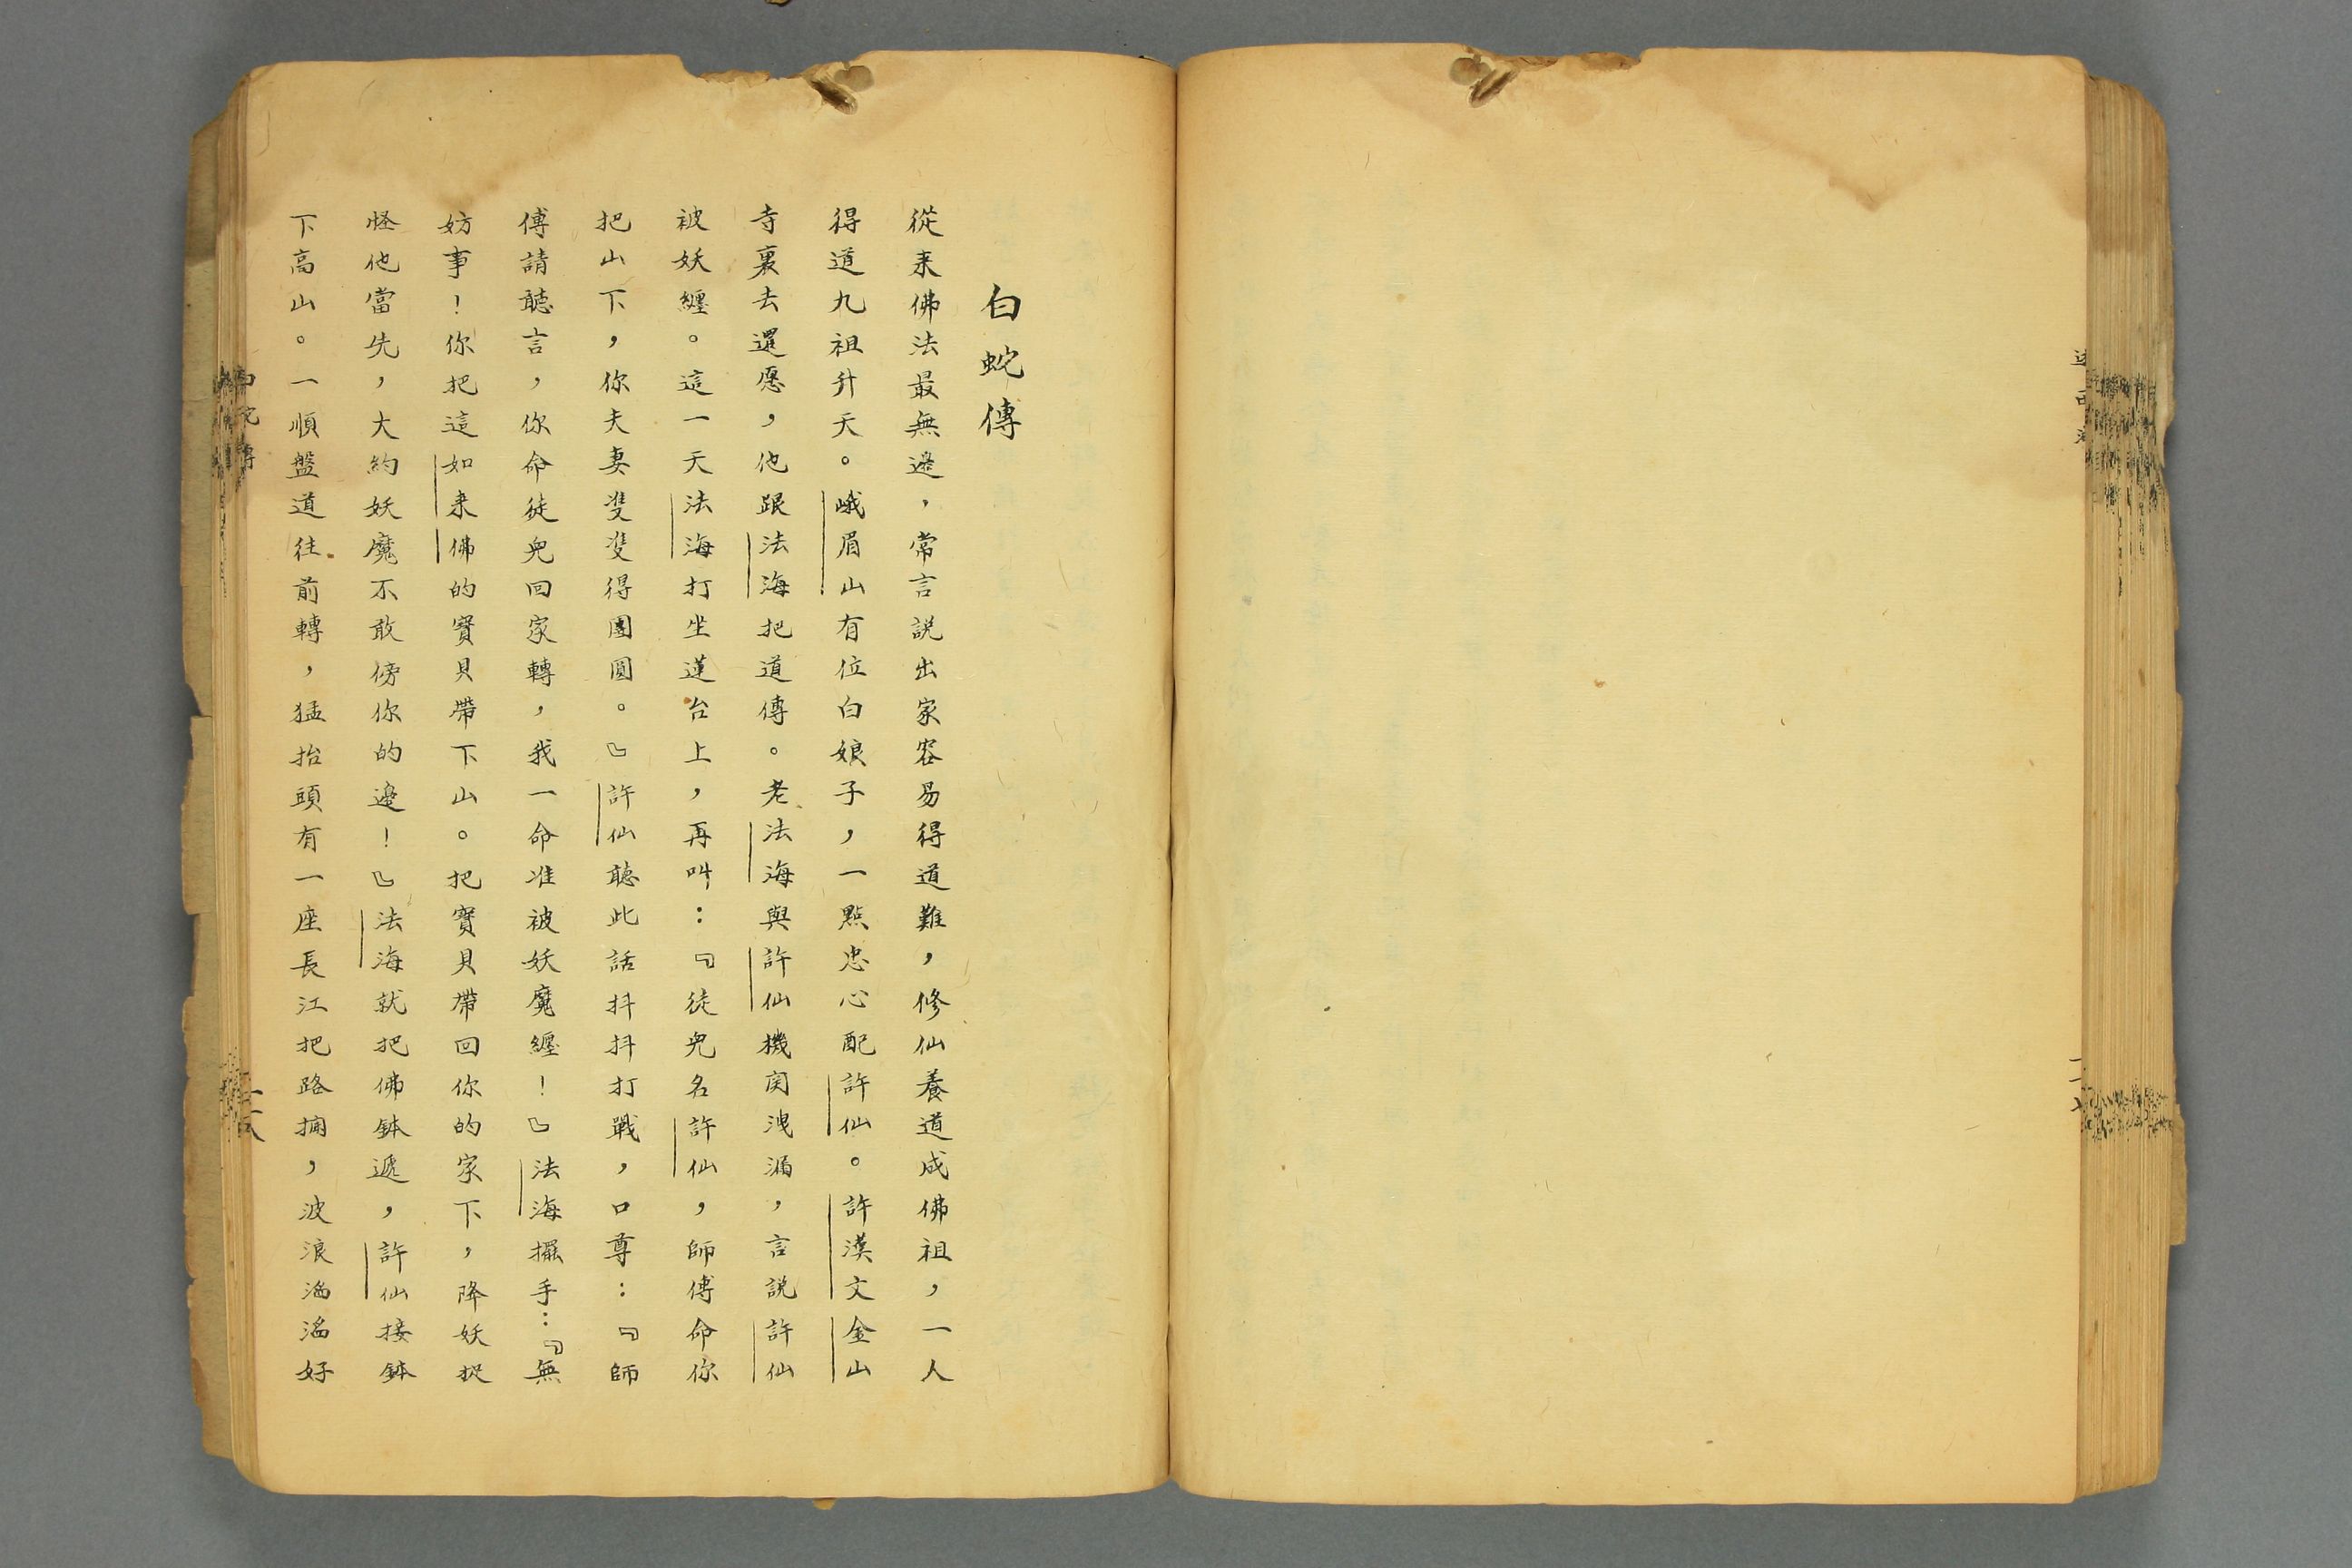 白蛇傳
從来佛法最無邊，常言說出家容易得道難，修仙養道成佛祖，一人
得道九祖升天。峨眉山有位白娘子，一點忠心配許仙。許漢文金山
寺裏去還愿，他跟法海把道傳。老法海與許仙機関洩漏，言説許仙
被妖纏。這一天法海打坐蓮台上，再叫：『徒兒名許仙，師傅命你
把山下，你夫妻雙雙得團圓。』許仙聽此話抖抖打戰，口尊：『師
傅請聽言，你命徒兒回家轉，我一命准被妖魔纏！』法海擺手：『無
妨事！你把這如来佛的寳貝帶下山。把寳貝帶回你的家下，降妖捉
怪他當先，大約妖魔不敢傍你的邊！』法海就把佛鉢遞，許仙接鉢
下高山。一順盤道往前轉，猛抬頭有一座長江把路攔，波浪滔滔好
白蛇傳